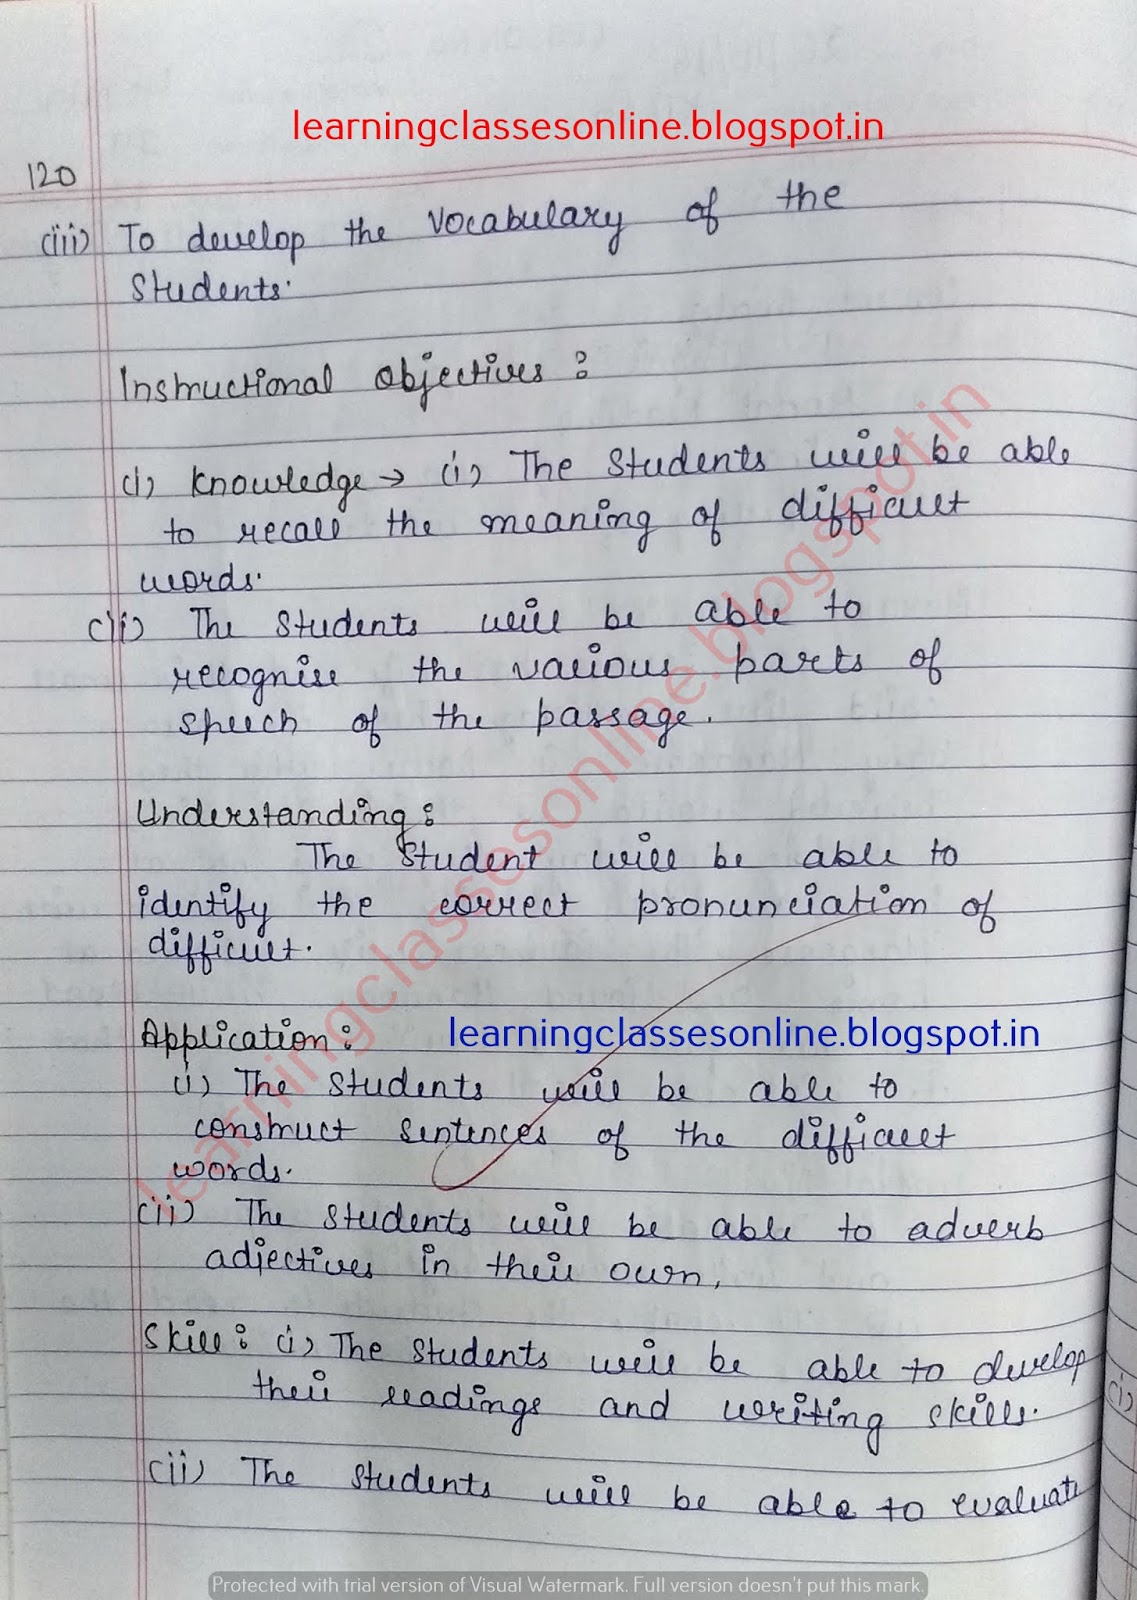 learningclassesonline.blogspot.in
120
(iii) To develop the Vocabulary of the
Students.
Instructional objectives :
(i) Knowledge → (i) The Students will be able
to recall the meaning of difficult
words.
(ii) The Students will be able to
recognise the various parts of
speech of the passage.
Understanding :
The Student will be able to
identify the correct pronunciation of
difficult.
Application :
learningclassesonline.blogspot.in
(i) The Students will be able to
construct sentences of the difficult
words.
(ii) The Students will be able to adverb
adjectives in their own,
Skill : (i) The Students will be able to develop
their readings and writing skills.
(i)
(ii) The Students will be able to evaluate
learningclassesonline.blogspot.in
Protected with trial version of Visual Watermark. Full version doesn't put this mark.